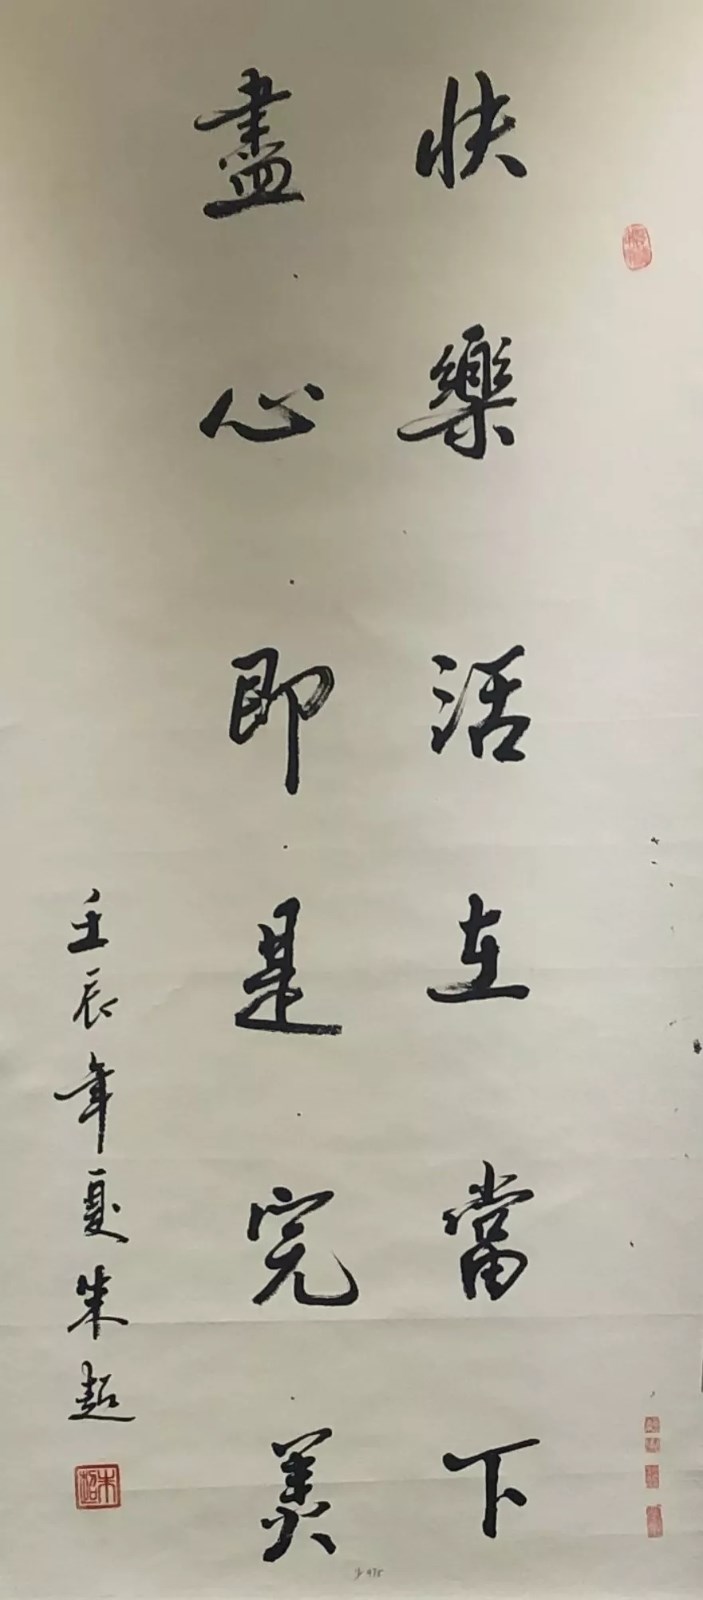 快樂活在當下
盡心即是完美
壬辰年夏朱超
朱超